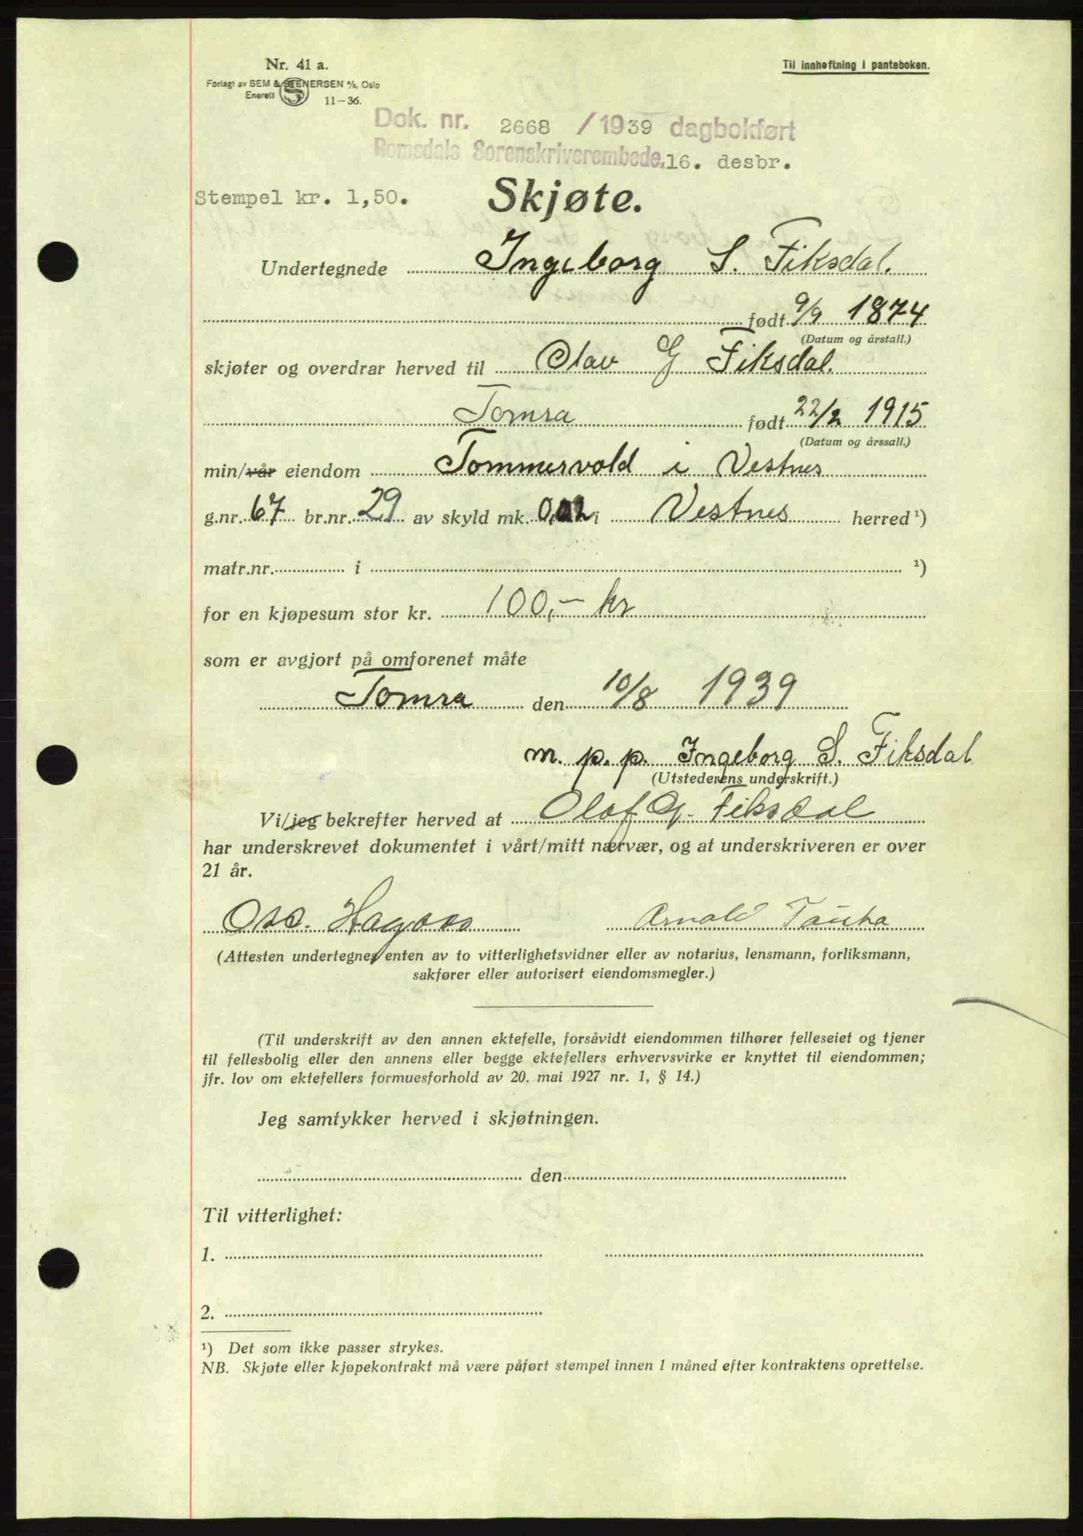 Nr. 41 a.
Til innheftning i panteboken.
Forlagt av SEM & STENERSEN A/S, Oslo
Enerett S 11-36.
Dok. nr. 2668 /1939 dagbokført
Romsdals Sorenskriverembede. 16. desbr.
Stempel kr. 1,50.
Skjøte.
Undertegnede Ingeborg S. Fiksdal.
født 9/9 1874
(Datum og årstall.)
skjøter og overdrar herved til Olav G Fiksdal.
Tomra født 22/2 1915
(Datum og årssall.)
min/vår eiendom Tommervold i Vestnes
g.nr. 67 br.nr. 29 av skyld mk. 0,02 i Vestnes herred ¹)
matr.nr. i ¹)
for en kjøpesum stor kr. 100,- kr
som er avgjort på omforenet måte
Tomra den 10/8 1939
m. p. p. Ingeborg S. Fiksdal
(Utstederens underskrift.)
Olaf G. Fiksdal
Vi/jeg bekrefter herved at
har underskrevet dokumentet i vårt/mitt nærvær, og at underskriveren er over
21 år.
Arnold
(Attesten undertegnes enten av to vitterlighetsvidner eller av notarius, lensmann, forliksmann,
sakfører eller autorisert eiendomsmegler.)
(Til underskrift av den annen ektefelle, forsåvidt eiendommen tilhører felleseiet og tjener
til fellesbolig eller den annens eller begge ektefellers erhvervsvirke er knyttet til eiendommen;
jfr. lov om ektefellers formuesforhold av 20. mai 1927 nr. 1, § 14.)
Jeg samtykker herved i skjøtningen.
den
Til vitterlighet:
1.
2.
¹) Det som ikke passer strykes.
NB. Skjøte eller kjøpekontrakt må være påført stempel innen 1 måned efter kontraktens oprettelse.